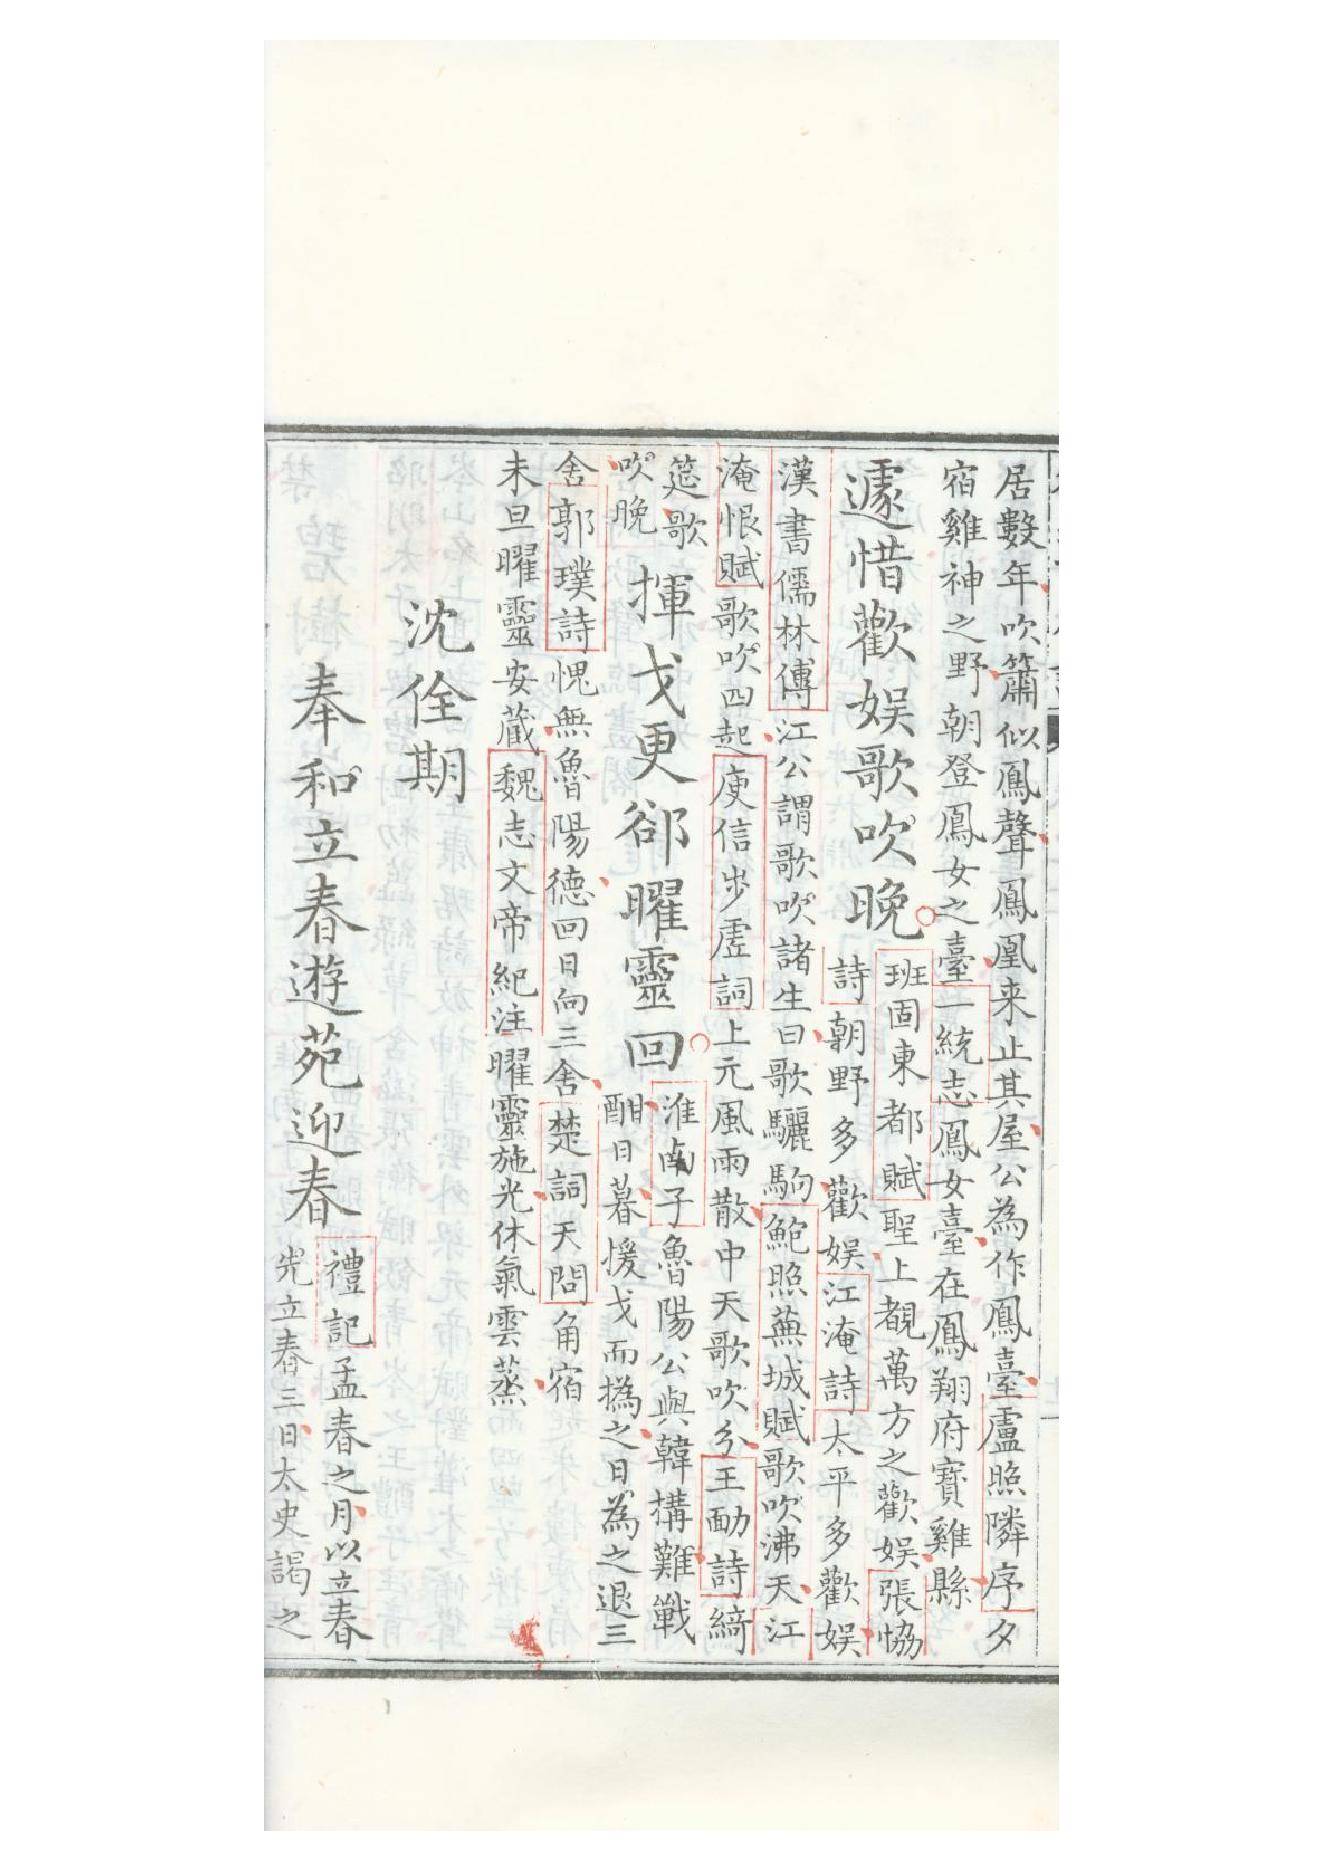 居數年吹簫似鳳聲鳳凰来止其屋公為作鳳臺盧照隣序夕
宿雞神之野朝登鳳女之臺一統志鳳女臺在鳳翔府寶雞縣
遽惜歡娱歌吹晚
班固東都賦聖上覩萬方之歡娱張恊
詩朝野多歡娱江淹詩太平多歡娱
漢書儒林傳江公謂歌吹諸生曰歌驪駒鮑照蕪城賦歌吹沸天江
淹恨賦歌吹四起庾信步虛詞上元風雨散中天歌吹分王勔詩綺
筵歌
吹晚
揮戈更郤曜靈回
淮南子魯陽公與韓搆難戰
酣日暮援戈而撝之日為之退三
舍郭璞詩愧無魯陽德回日向三舍楚詞天問角宿
未旦曜靈安藏魏志文帝紀注曜靈施光休氣雲蒸
沈佺期
奉和立春遊苑迎春
禮記孟春之月以立春
先立春三日太史謁之